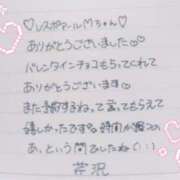 ♡レスポアールMちゃん♡
ありがとうございました♡
バレンタインチョコもらってくれて
ありがとうございます♡
また予約するねって言ってもらえて
嬉しかったです♡ 時間が
あ、という間でしたね(;;)
芹沢